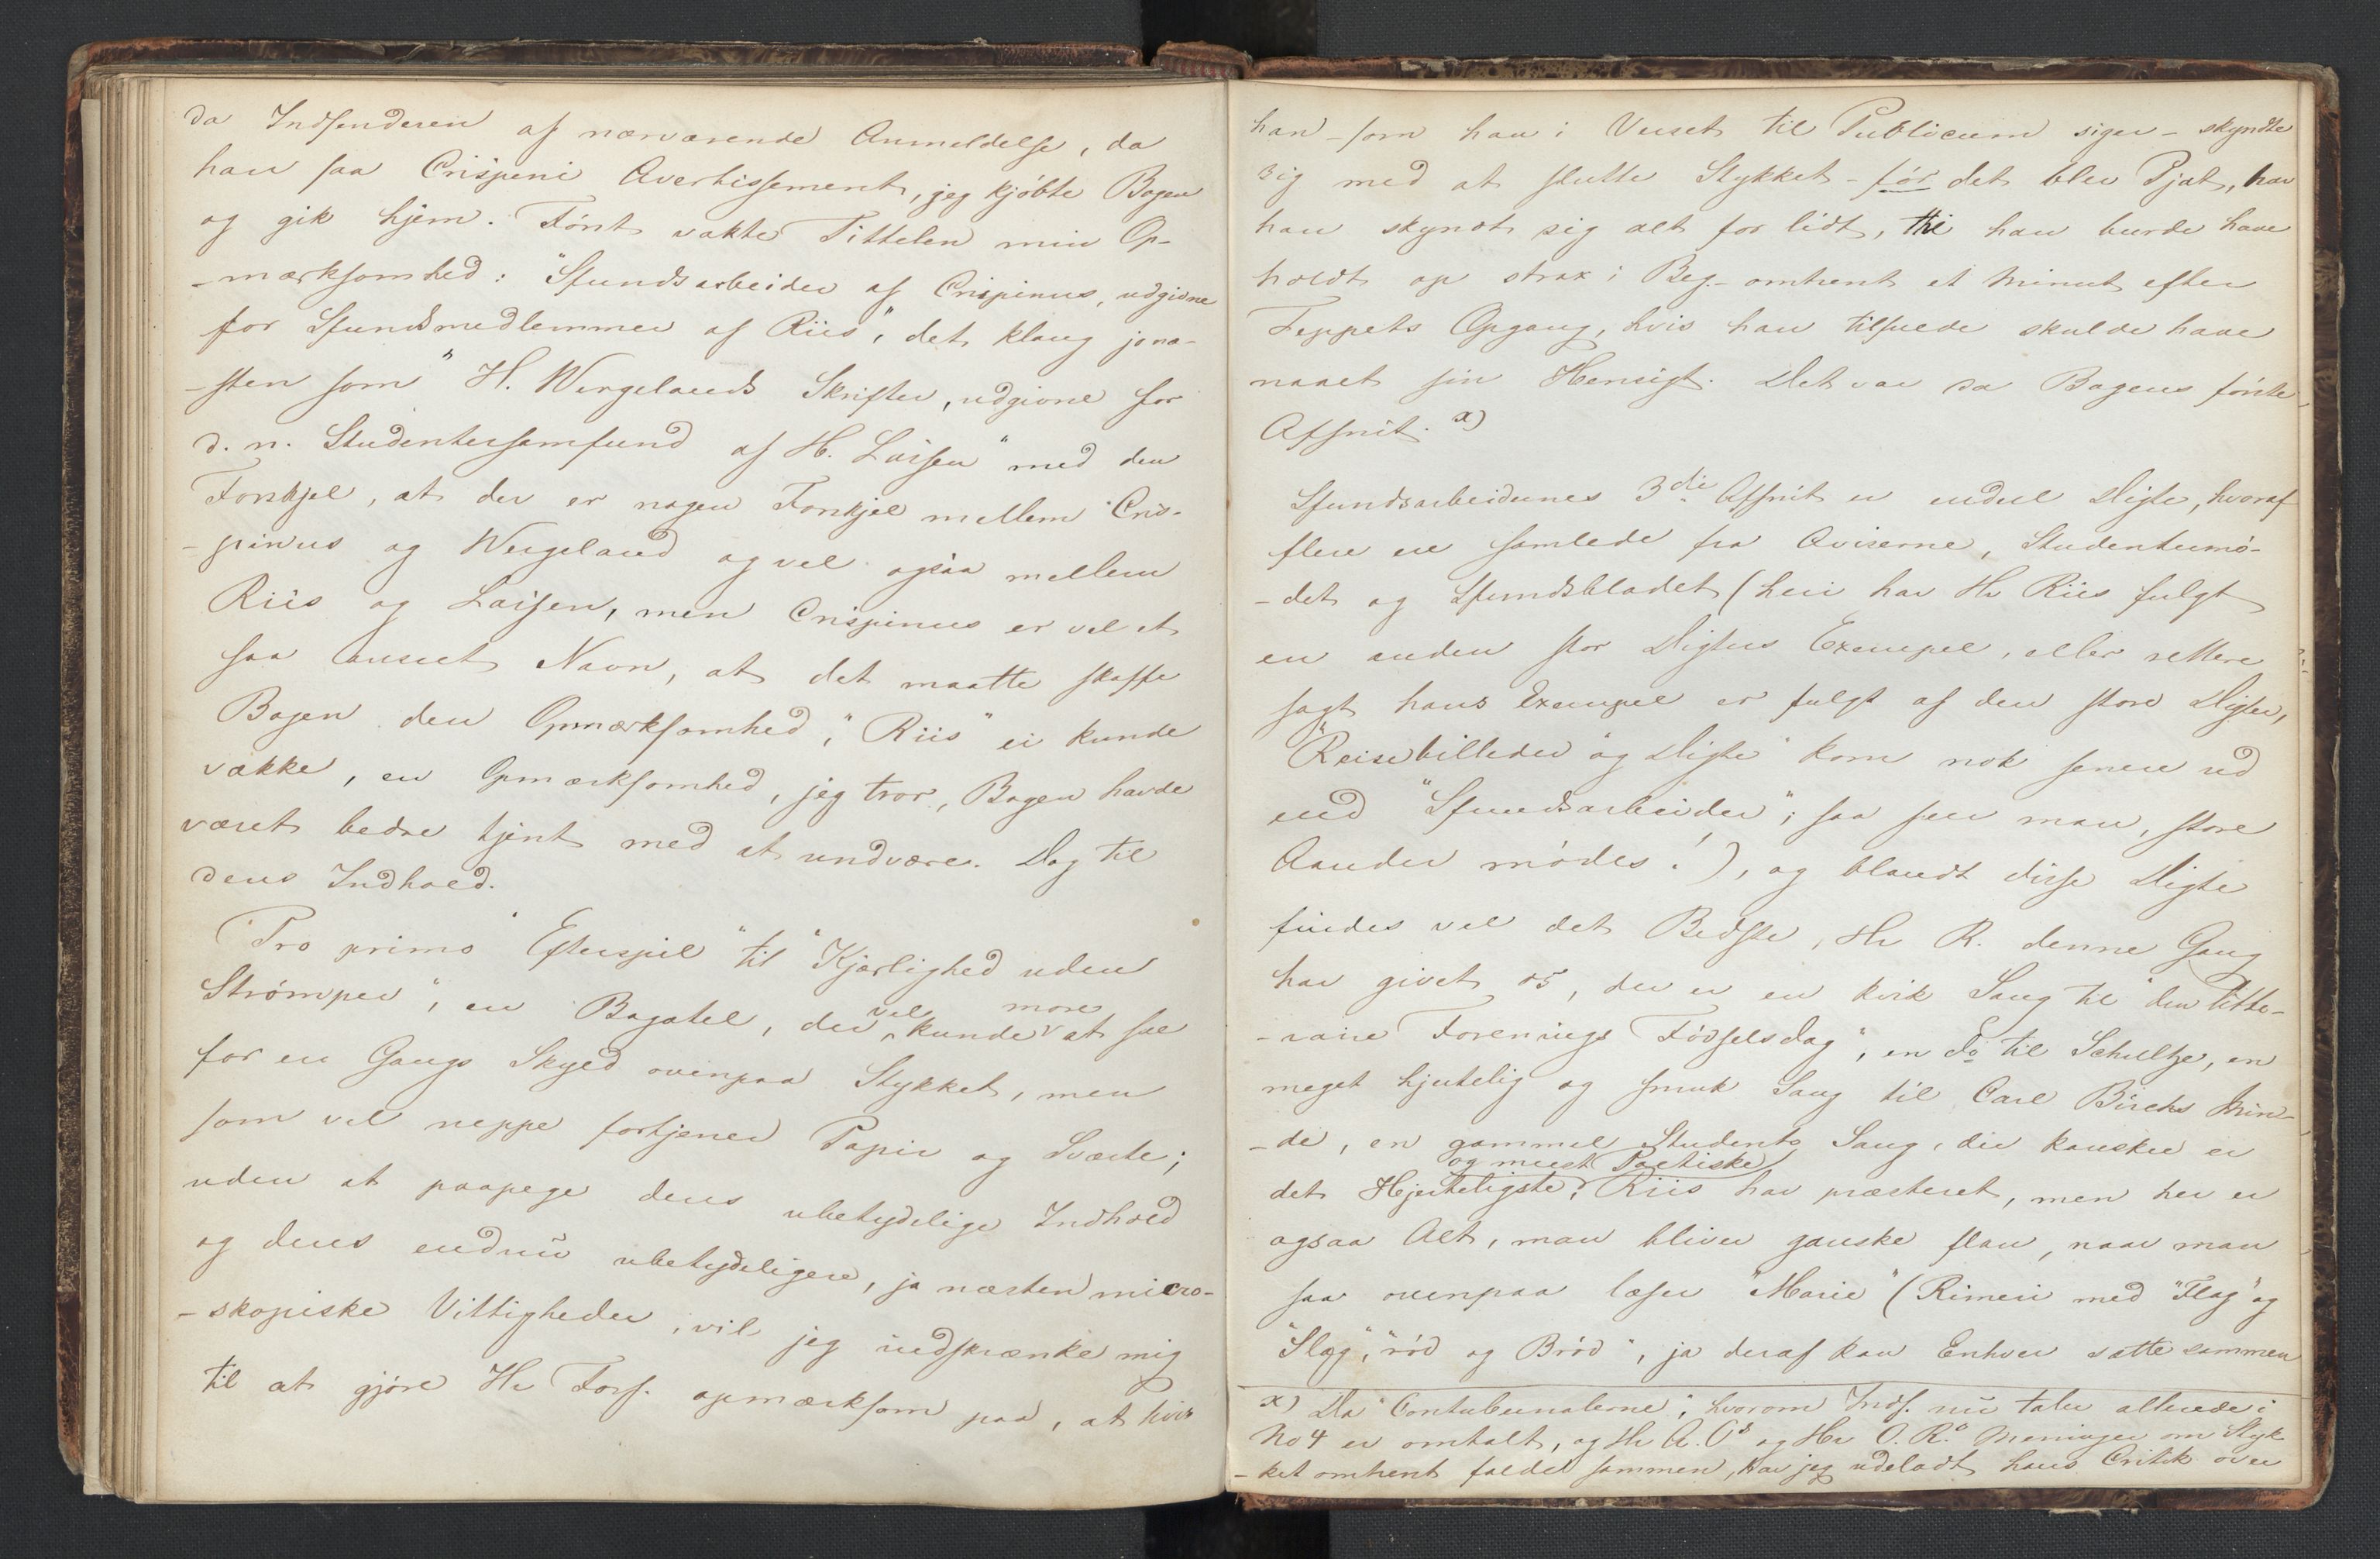 da Indsenderen af nærværende Anmeldelse, da
han saa Crispini Avertissement, jeg kjöbte Bogen
og gik hjem. Först vakte Tittelen min Op-
-mærksomhed: "Sfundsarbeider af Crispinus, udgivne
for Sfundsmedlemmer af Riis", det klang jo næ-
-sten som "H. Wergelands Skrifter, udgivne for
d. n. Studentersamfund af H. Lassen" med den
Forskjel, at der er nogen Forskjel mellem Cris-
-pinus og Wergeland og vel ogsaa mellem
Riis og Lassen, men Crispinus er vel et
saa anseet Navn, at det maatte skaffe
Bogen den Opmærksomhed, "Riis" ei kunde
vække, en Opmærksomhed, jeg tror, Bogen havde
været bedre tjent med at undvære. Dog til
dens Indhold.
Pro primo "Efterspil" til "Kjærlighed uden
Strömper", en Bagatel, der vel kunde more at see
for en Gangs Skyld ovenpaa Stykket, men
som vel neppe fortjener Papir og Sværte;
uden at paapege dens ubetydelige Indhold
og dens endnu ubetydeligere, ja næsten micro-
-skopiske Vittigheder, vil jeg indskrænke mig
til at gjöre Hr Forf. opmærksom paa, at hvis
han - som han i Verset til Publicum siger - skyndte
sig med at slutte Stykket - för det blev Pjat, har
han skyndt sig alt for lidt, thi han burde have
holdt op strax i Beg. - omtrent et Minut efter
Teppets Opgang, hvis han tilfulde skulde have
naaet sin Hensigt. Det var da Bogens förste
Afsnit. x)
Sfundsarbeidernes 3die Afsnit er endeel Digte, hvoraf
flere ere samlede fra Aviserne, Studentermö-
-det og Sfundsbladet (heri har Hr Riis fulgt
en anden stor Digters Exempel, eller rettere
sagt hans Exempel er fulgt af den store Digter,
"Reisebilleder og Digte" kom nok senere ud
end "Sfundsarbeider"; saa seer man, store
Aander mödes!), og blandt disse Digte
findes vel det Bedste, Hr R. denne Gang
har givet os, der er en kvik Sang til "den litte-
-raire Forenings Födselsdag", en do til Schultze, en
meget hjertelig og smuk Sang til Carl Birchs Min-
-de, en gammel Students Sang, der kanskee er
det Hjerteligste og meest Poetiske, Riis har præsteret, men her er
ogsaa Alt, man bliver ganske flau, naar man
saa ovenpaa læser "Marie" (Rimeri med "Flag" og
"Slag", "röd og Bröd", ja deraf kan Enhver sætte sammen
x) Da "Contubernalerne", hvorom Inds. nu taler allerede i
No 4 er omtalt, og Hr A. O's og Hr O. R.s Meninger om Styk
-ket omtrent faldt sammen, har jeg udeladt hans Critik over